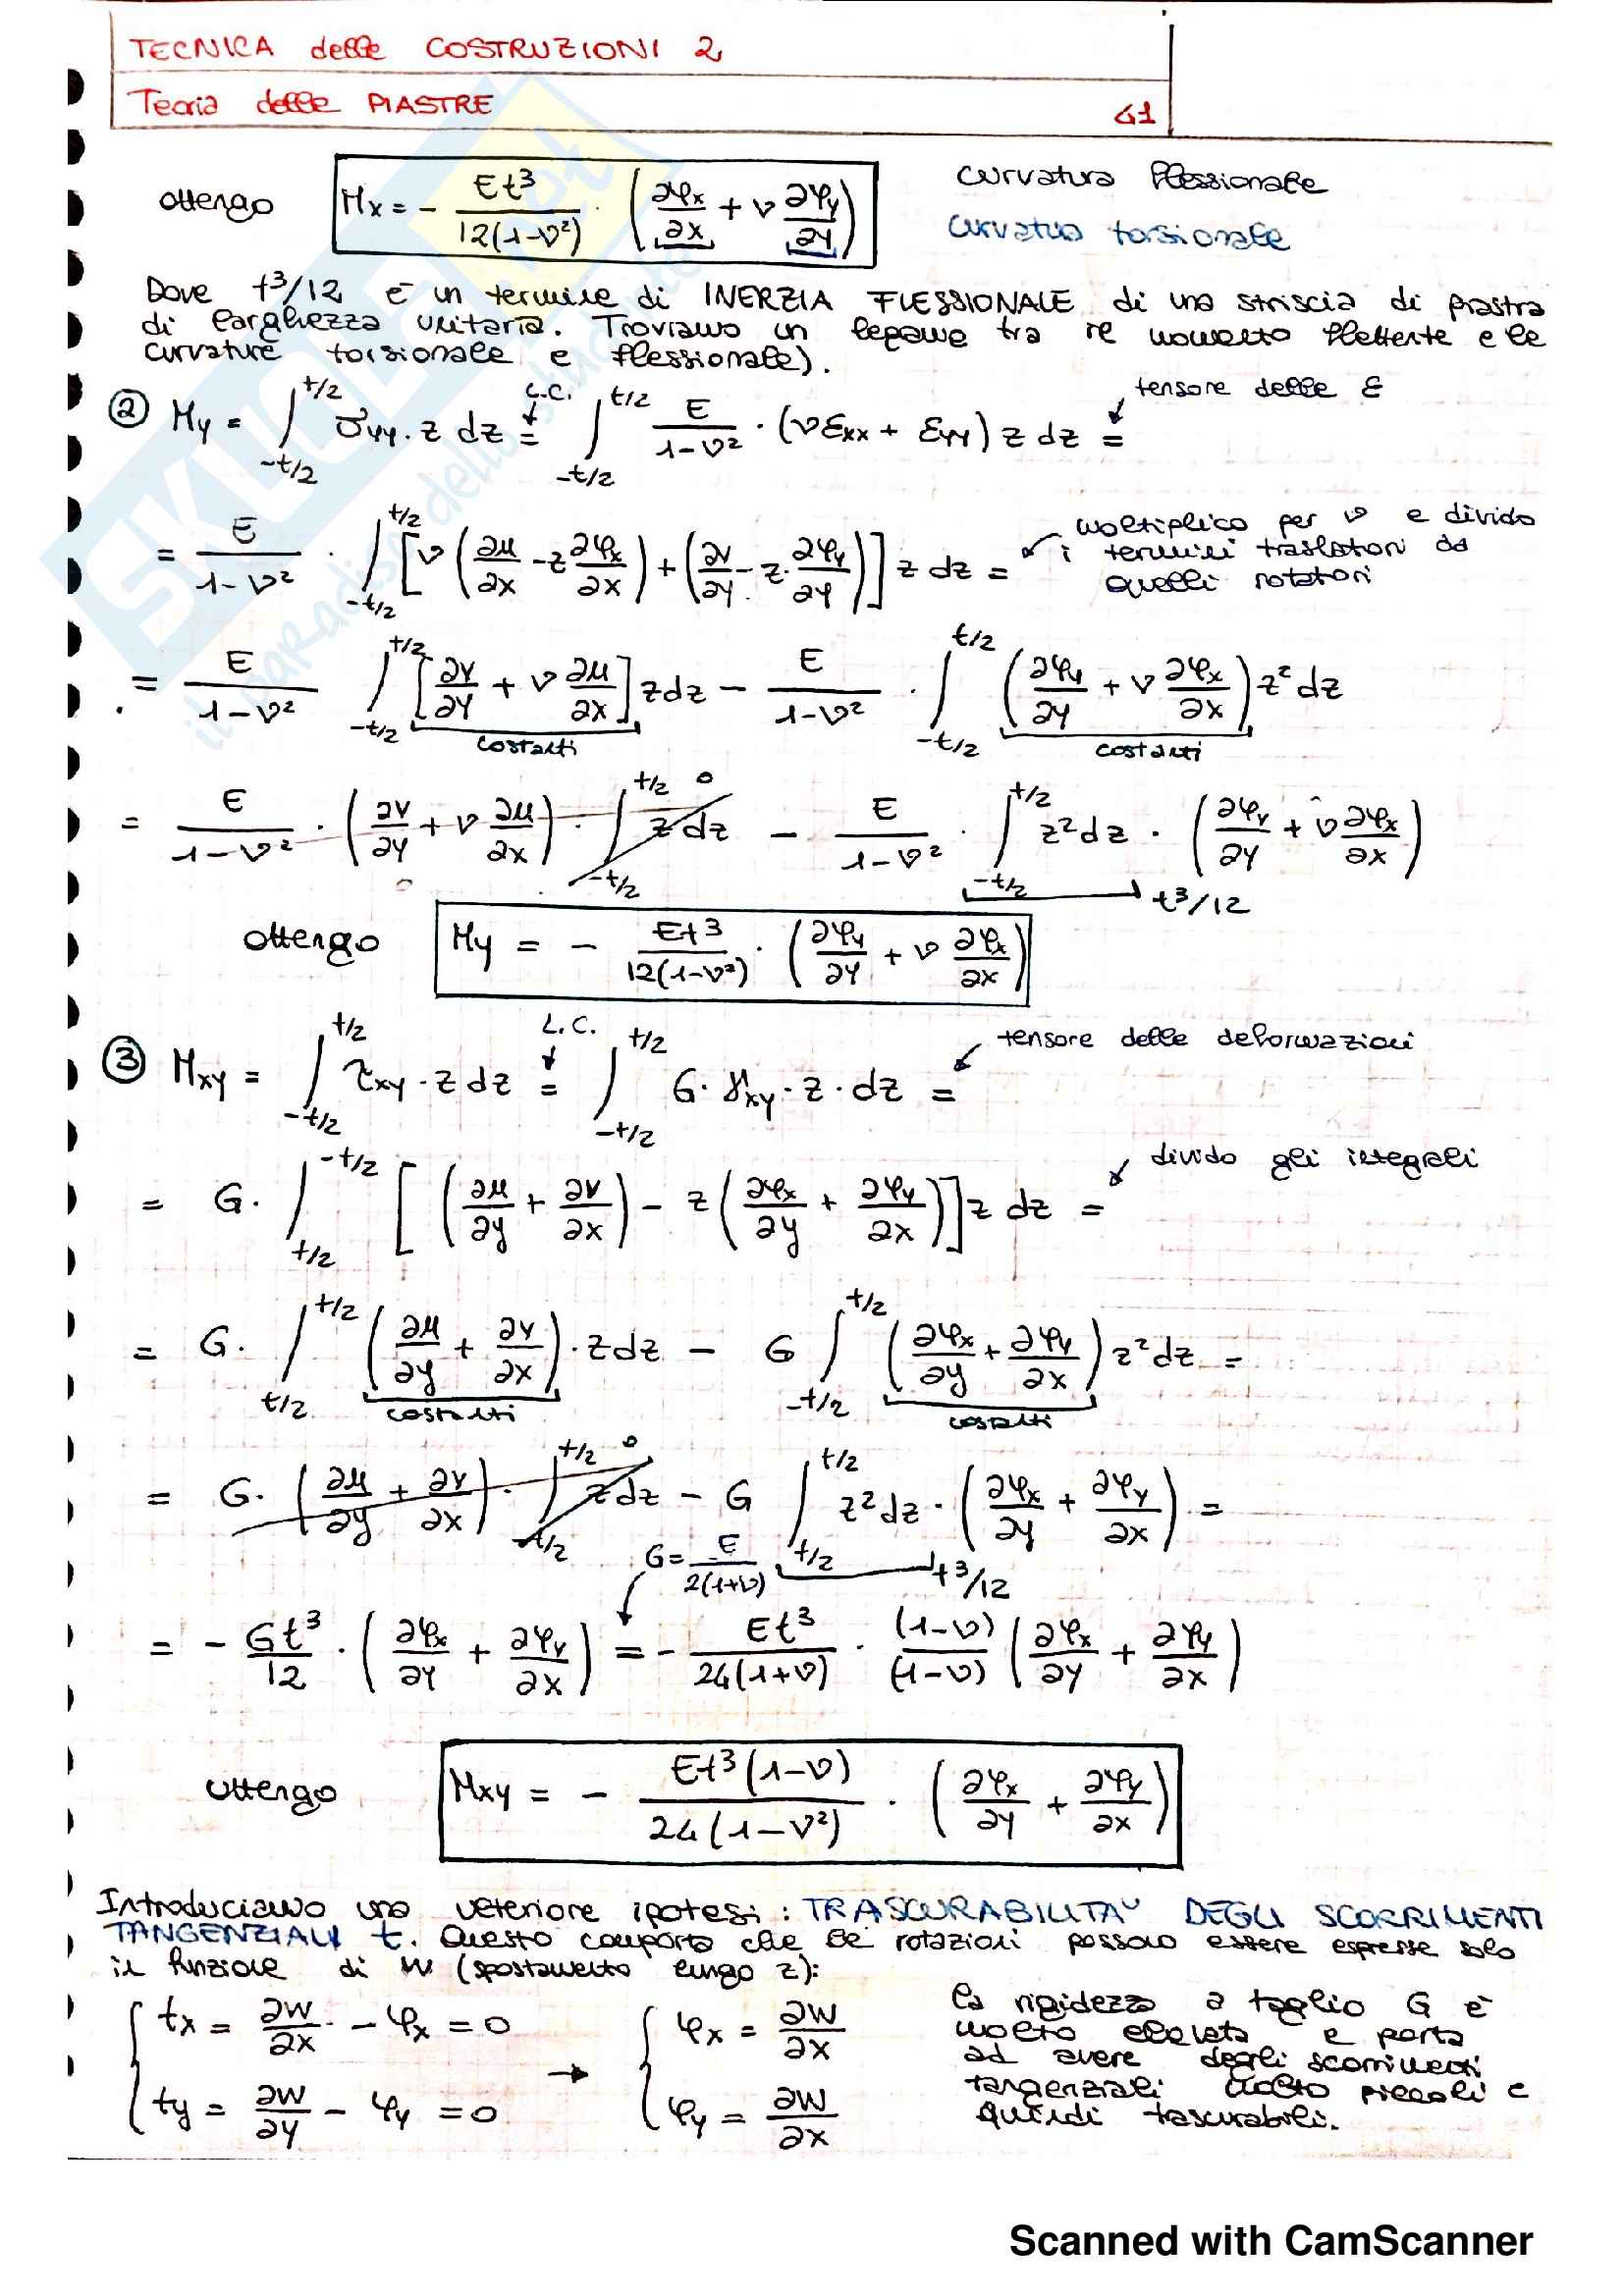 TECNICA delle COSTRUZIONI 2
Teoria delle PIASTRE 61
ottengo Mx = - Et³/12(1-ν²) · (∂φx/∂x + ν ∂φy/∂y)
curvatura flessionale
curvatura torsionale
Dove t³/12 è un termine di INERZIA FLESSIONALE di una striscia di piastra
di larghezza unitaria. Troviamo un legame tra il momento flettente e le
curvature torsionale e flessionale).
② My = ∫_{-t/2}^{t/2} σyy · z dz = L.C. ∫_{-t/2}^{t/2} E/1-ν² · (νεxx + εyy) z dz = tensore delle ε
= E/1-ν² · ∫_{-t/2}^{t/2} [ν(∂u/∂x - z ∂φx/∂x) + (∂v/∂y - z · ∂φy/∂y)] z dz = moltiplico per ν e divido
i termini traslatori da
quelli rotatori
= E/1-ν² ∫_{-t/2}^{t/2} [∂v/∂y + ν ∂u/∂x] z dz - E/1-ν² · ∫_{-t/2}^{t/2} (∂φy/∂y + ν ∂φx/∂x) z² dz
costanti costanti
= E/1-ν² · (∂v/∂y + ν ∂u/∂x) · ∫_{-t/2}^{t/2} z dz 0 - E/1-ν² · ∫_{-t/2}^{t/2} z² dz · (∂φy/∂y + ν ∂φx/∂x)
t³/12
ottengo My = - Et³/12(1-ν²) · (∂φy/∂y + ν ∂φx/∂x)
③ Mxy = ∫_{-t/2}^{t/2} τxy · z dz = L.C. ∫_{-t/2}^{t/2} G · γxy · z · dz = tensore delle deformazioni
= G · ∫_{t/2}^{-t/2} [(∂u/∂y + ∂v/∂x) - z(∂φx/∂y + ∂φy/∂x)] z dz = divido gli integrali
= G · ∫_{t/2}^{t/2} (∂u/∂y + ∂v/∂x) · z dz - G ∫_{-t/2}^{t/2} (∂φx/∂y + ∂φy/∂x) z² dz =
costanti costanti
= G · (∂u/∂y + ∂v/∂x) · ∫_{-t/2}^{t/2} z dz 0 - G ∫_{t/2}^{t/2} z² dz · (∂φx/∂y + ∂φy/∂x) =
G = E/2(1+ν) t³/12
= - Gt³/12 · (∂φx/∂y + ∂φy/∂x) = - Et³/24(1+ν) · (1-ν)/(1-ν) (∂φx/∂y + ∂φy/∂x)
ottengo Mxy = - Et³(1-ν)/24(1-ν²) · (∂φx/∂y + ∂φy/∂x)
Introduciamo una ulteriore ipotesi: TRASCURABILITA' DEGLI SCORRIMENTI
TANGENZIALI t. Questo comporta che le rotazioni possono essere espresse solo
in funzione di w (spostamento lungo z):
tx = ∂w/∂x - φx = 0 → φx = ∂w/∂x
ty = ∂w/∂y - φy = 0 φy = ∂w/∂x
la rigidezza a taglio G è
molto elevata e porta
ad avere degli scorrimenti
tangenziali molto piccoli e
quindi trascurabili.
SKUOLA.net
il paradiso dello studente
Scanned with CamScanner